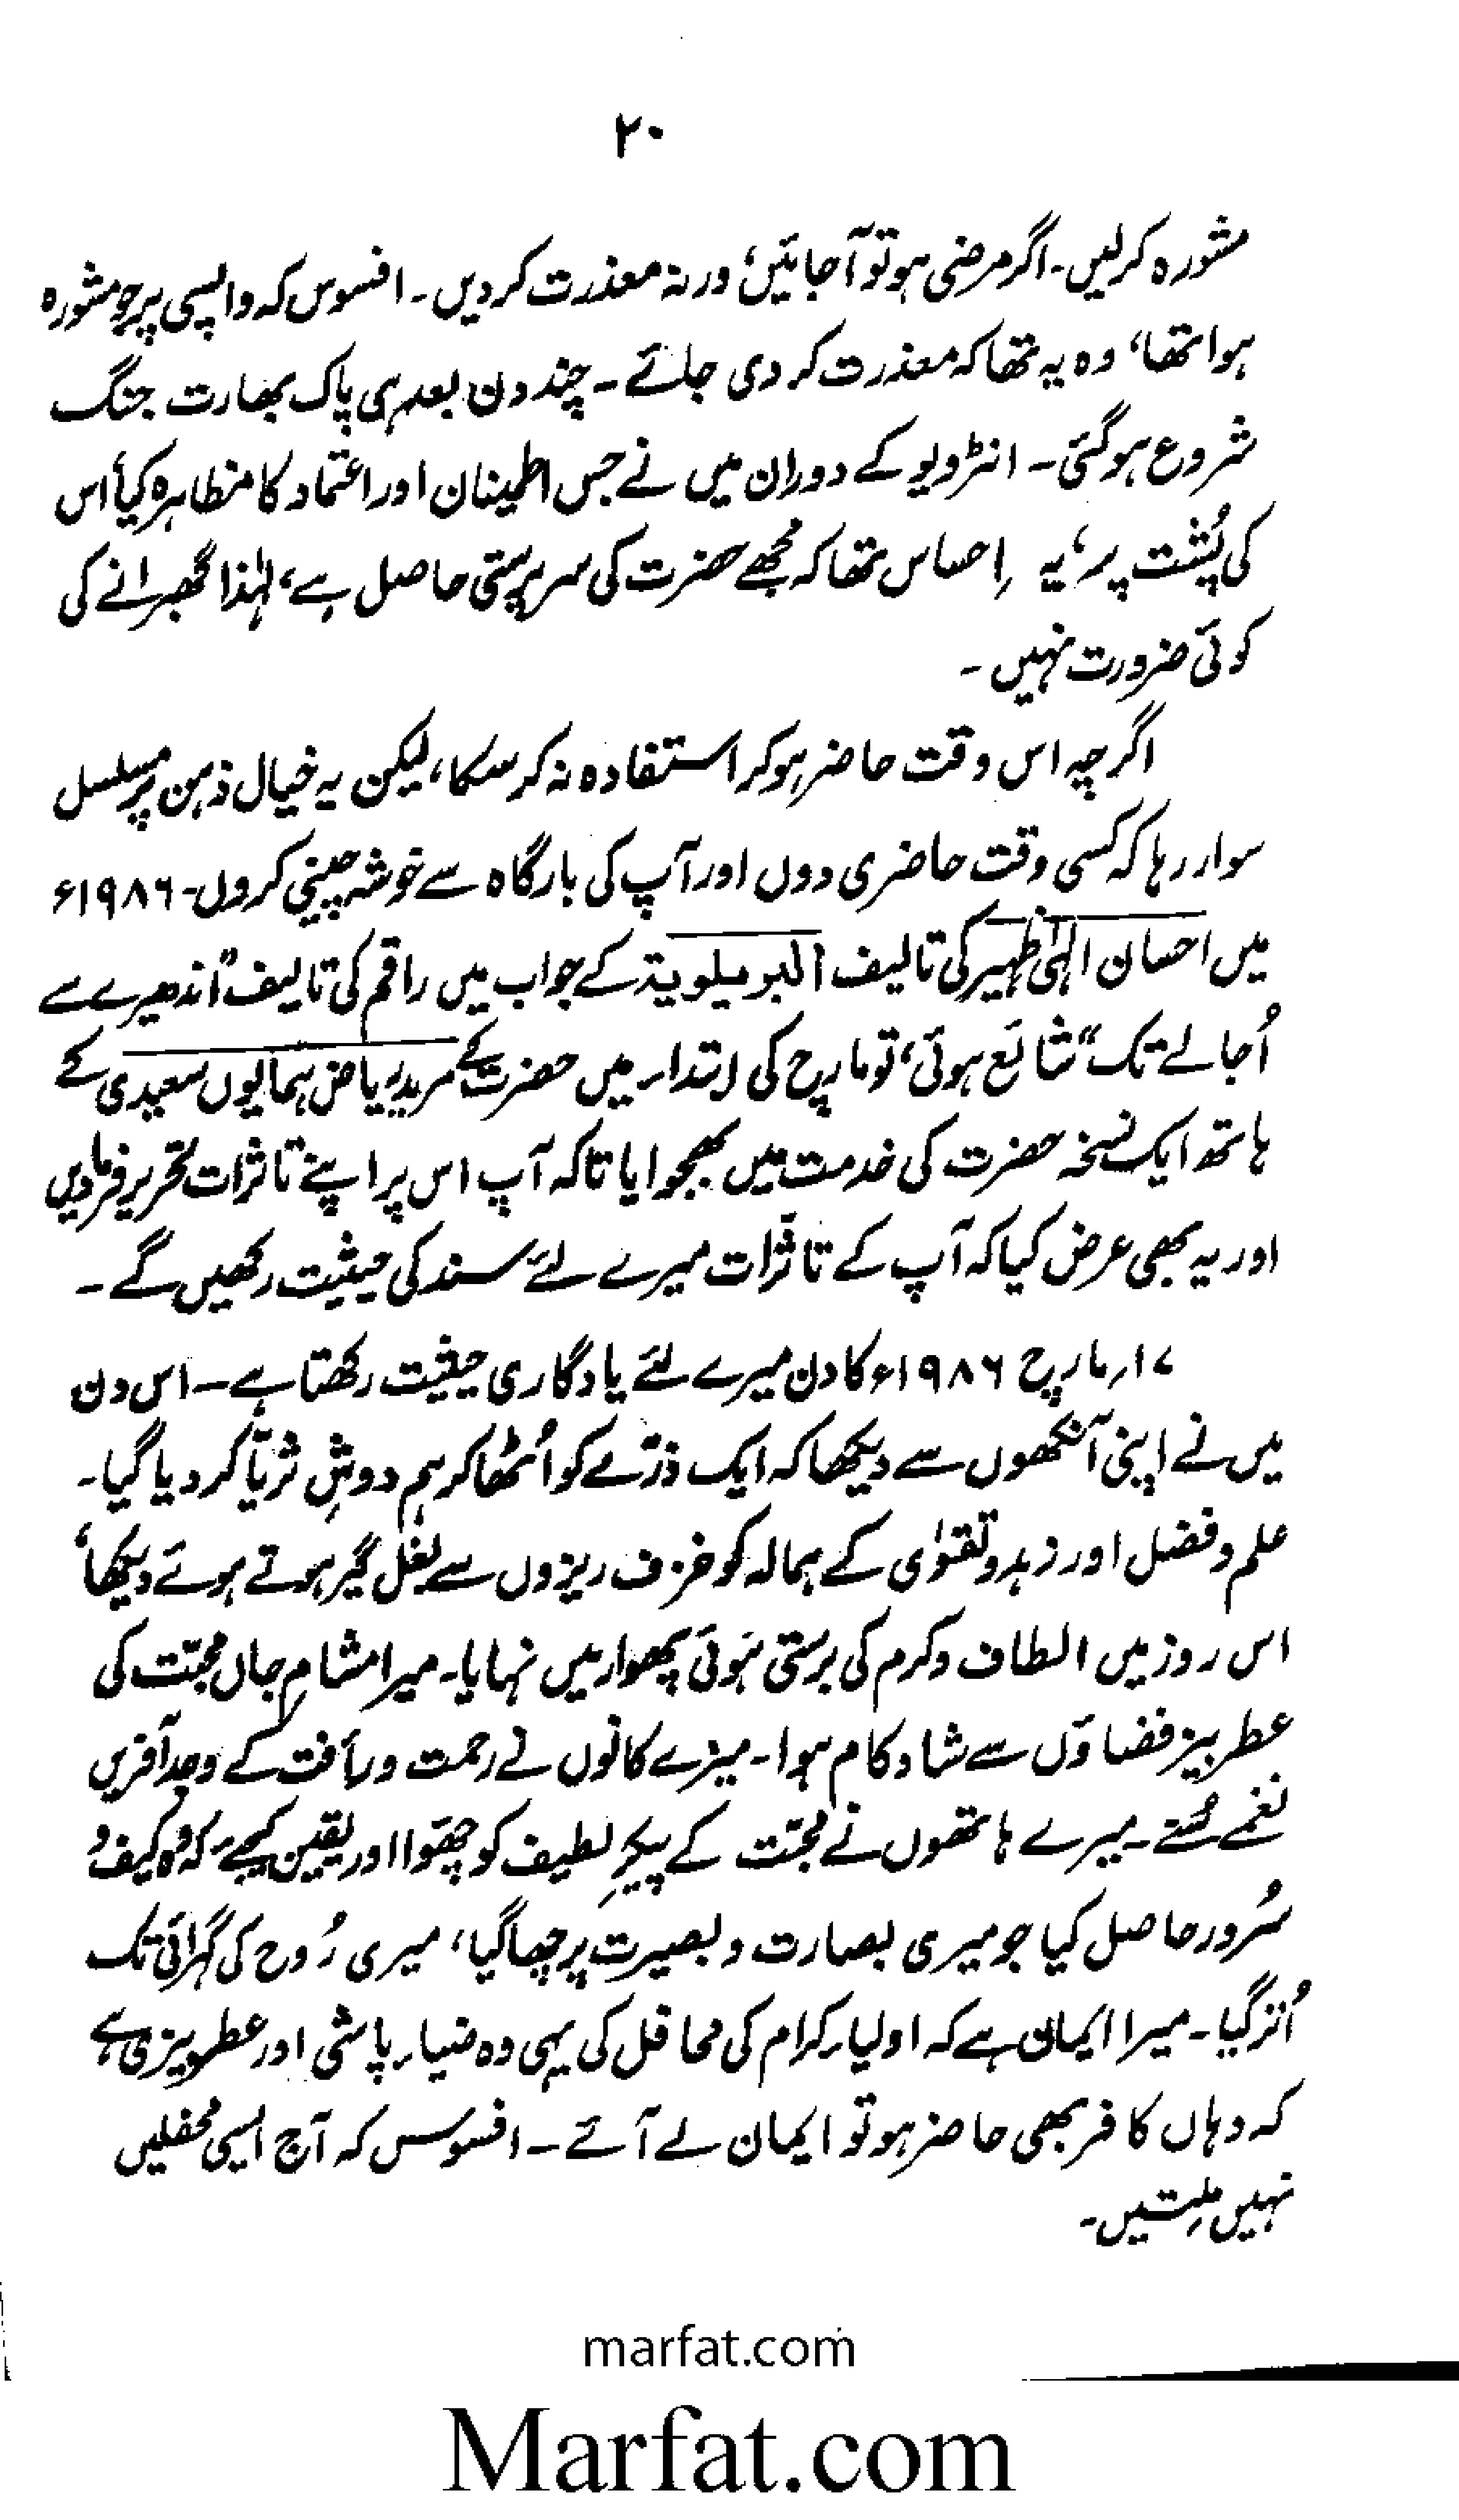 ۲۰
مشورہ کرلیں۔ اگر مرضی ہو تو آجائیں، ورنہ معذرت کردیں۔ افسوس کہ واپسی پر جو مشورہ
ہوا تھا، وہ یہ تھا کہ معذرت کر دی جائے۔ چند دن بعد ہی پاک بھارت جنگ
شروع ہوگئی۔ انٹرویو کے دوران میں نے جس اطمینان اور اعتماد کا مظاہرہ کیا، اس
کی پُشت پر، یہ اِحساس تھا کہ مُجھے حضرت کی سرپرستی حاصل ہے، لہٰذا گھبرانے کی
کوئی ضرورت نہیں۔
اگرچہ اس وقت حاضر ہو کر استفادہ نہ کر سکا، لیکن یہ خیال ذہن پر مسلسل
سوار رہا کہ کسی وقت حاضری دوں اور آپ کی بارگاہ سے خوشہ چینی کروں۔ ۱۹۸۶ء
میں احسان الٰہی ظہیر کی تالیف البریلویۃ کے جواب میں راقم کی تالیف "اندھیرے سے
اُجالے تک" شائع ہوئی، تو مارچ کی ابتداء میں حضرت کے مرید ریاض ہمایوں سعیدی کے
ہاتھ ایک نسخہ حضرت کی خدمت میں بھجوایا تاکہ آپ اس پر اپنے تاثرات تحریر فرمادیں
اور یہ بھی عرض کیا کہ آپ کے تاثرات میرے لئے سند کی حیثیت رکھیں گے۔
۱۷؍مارچ ۱۹۸۶ء کا دن میرے لئے یادگاری حیثیت رکھتا ہے۔ اس دن
میں نے اپنی آنکھوں سے دیکھا کہ ایک ذرّے کو اُٹھا کر ہم دوشِ ثریّا کر دیا گیا۔
علم و فضل اور زہد و تقوٰی کے ہمالہ کو خزف ریزوں سے بغل گیر ہوتے ہوئے دیکھا،
اس روز میں الطاف و کرم کی برستی ہُوئی پھوار میں نہایا۔ میرا مشامِ جاں محبّت کی
عطر بیز فضاؤں سے شاد کام ہوا۔ میرے کانوں نے رحمت و رأفت کے وجد آفریں
نغمے سُنے۔ میرے ہاتھوں نے محبّت کے پیکرِ لطیف کو چھُوا اور یقین کیجیے کہ وہ کیف و
سُرور حاصل کیا جو میری بصارت و بصیرت پر چھا گیا، میری رُوح کی گہرائی تک
اُتر گیا۔ میرا ایمان ہے کہ اولیاء کرام کی محافل کی یہی وہ ضیاء پاشی اور عطر بیزی ہے
کہ وہاں کافر بھی حاضر ہو تو ایمان لے آئے۔ افسوس کہ آج ایسی محفلیں
نہیں مِلتیں۔
marfat.com
Marfat.com